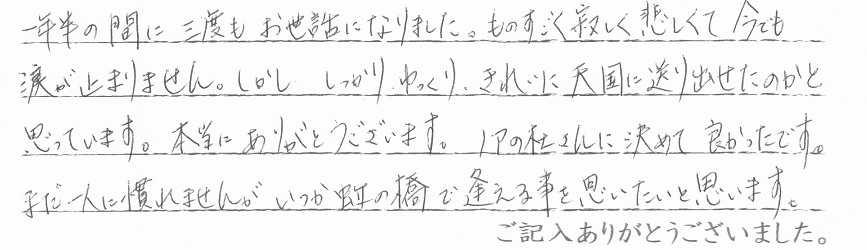 一年半の間に三度もお世話になりました。ものすごく寂しく悲しくて今でも
涙が止まりません。しかし しっかり、ゆっくり、きれいに天国に送り出せたのかと
思っています。本当にありがとうございます。ノアの杜さんに決めて良かったです。
まだ一人に慣れませんがいつか虹の橋で逢える事を思いたいと思います。
ご記入ありがとうございました。